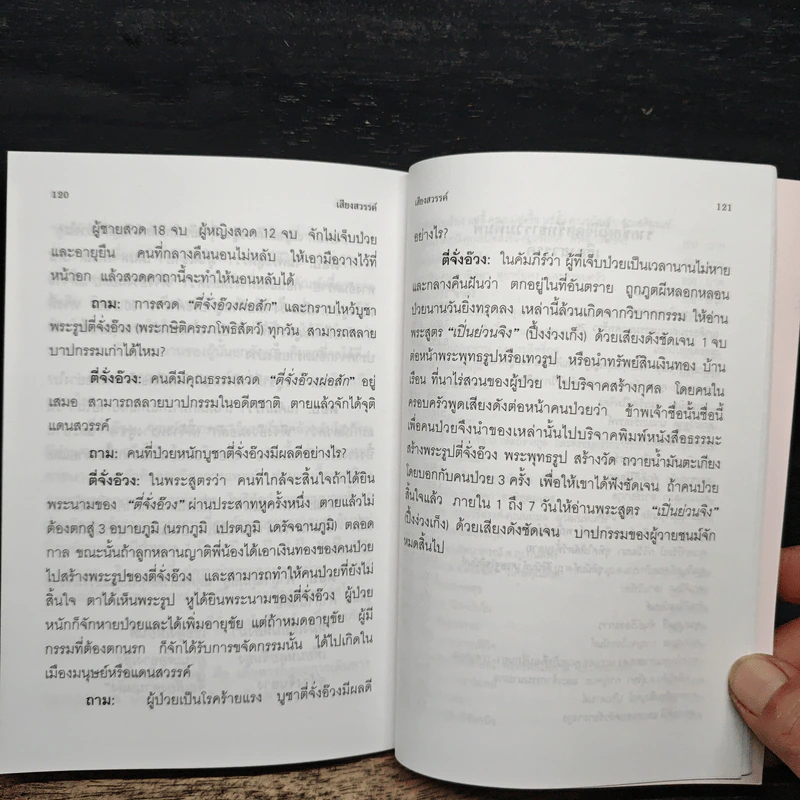 120
เสียงสวรรค์
ผู้ชายสวด 18 จบ ผู้หญิงสวด 12 จบ จักไม่เจ็บป่วย
และอายุยืน คนที่กลางคืนนอนไม่หลับ ให้เอามือวางไว้ที่
หน้าอก แล้วสวดคาถานี้จะทำให้นอนหลับได้
ถาม: การสวด “ตี่จั่งอ๊วงผ่อสัก” และกราบไหว้บูชา
พระรูปตี่จั่งอ๊วง (พระกษิติครรภโพธิสัตว์) ทุกวัน สามารถสลาย
บาปกรรมเก่าได้ไหม?
ตี่จั่งอ๊วง: คนดีมีคุณธรรมสวด “ตี่จั่งอ๊วงผ่อสัก” อยู่
เสมอ สามารถสลายบาปกรรมในอดีตชาติ ตายแล้วจักได้จุติ
แดนสวรรค์
ถาม: คนที่ป่วยหนักบูชาตี่จั่งอ๊วงมีผลดีอย่างไร?
ตี่จั่งอ๊วง: ในพระสูตรว่า คนที่ใกล้จะสิ้นใจถ้าได้ยิน
พระนามของ “ตี่จั่งอ๊วง” ผ่านประสาทหูครั้งหนึ่ง ตายแล้วไม่
ต้องตกสู่ 3 อบายภูมิ (นรกภูมิ เปรตภูมิ เดรัจฉานภูมิ) ตลอด
กาล ขณะนั้นถ้าลูกหลานญาติพี่น้องได้เอาเงินทองของคนป่วย
ไปสร้างพระรูปของตี่จั่งอ๊วง และสามารถทำให้คนป่วยที่ยังไม่
สิ้นใจ ตาได้เห็นพระรูป หูได้ยินพระนามของตี่จั่งอ๊วง ผู้ป่วย
หนักก็จักหายป่วยและได้เพิ่มอายุขัย แต่ถ้าหมดอายุขัย ผู้มี
กรรมที่ต้องตกนรก ก็จักได้รับการขจัดกรรมนั้น ได้ไปเกิดใน
เมืองมนุษย์หรือแดนสวรรค์
ถาม: ผู้ป่วยเป็นโรคร้ายแรง บูชาตี่จั่งอ๊วงมีผลดี
เสียงสวรรค์
121
อย่างไร?
ตี่จั่งอ๊วง: ในคัมภีร์ว่า ผู้ที่เจ็บป่วยเป็นเวลานานไม่หาย
และกลางคืนฝันว่า ตกอยู่ในที่อันตราย ถูกภูตผีหลอกหลอน
ป่วยนานวันยิ่งทรุดลง เหล่านี้ล้วนเกิดจากวิบากกรรม ให้อ่าน
พระสูตร “เป็นย่วนจิง” (ปึ้งง่วงเก็ง) ด้วยเสียงดังชัดเจน 1 จบ
ต่อหน้าพระพุทธรูปหรือเทวรูป หรือนำทรัพย์สินเงินทอง บ้าน
เรือน ที่นาไร่สวนของผู้ป่วย ไปบริจาคสร้างกุศล โดยคนใน
ครอบครัวพูดเสียงดังต่อหน้าคนป่วยว่า ข้าพเจ้าชื่อนั้นชื่อนี้
เพื่อคนป่วยจึงนำของเหล่านั้นไปบริจาคพิมพ์หนังสือธรรมะ
สร้างพระรูปตี่จั่งอ๊วง พระพุทธรูป สร้างวัด ถวายน้ำมันตะเกียง
โดยบอกกับคนป่วย 3 ครั้ง เพื่อให้เขาได้ฟังชัดเจน ถ้าคนป่วย
สิ้นใจแล้ว ภายใน 1 ถึง 7 วันให้อ่านพระสูตร “เป็นย่วนจิง”
(ปึ้งง่วงเก็ง) ด้วยเสียงดังชัดเจน บาปกรรมของผู้วายชนม์จัก
หมดสิ้นไป